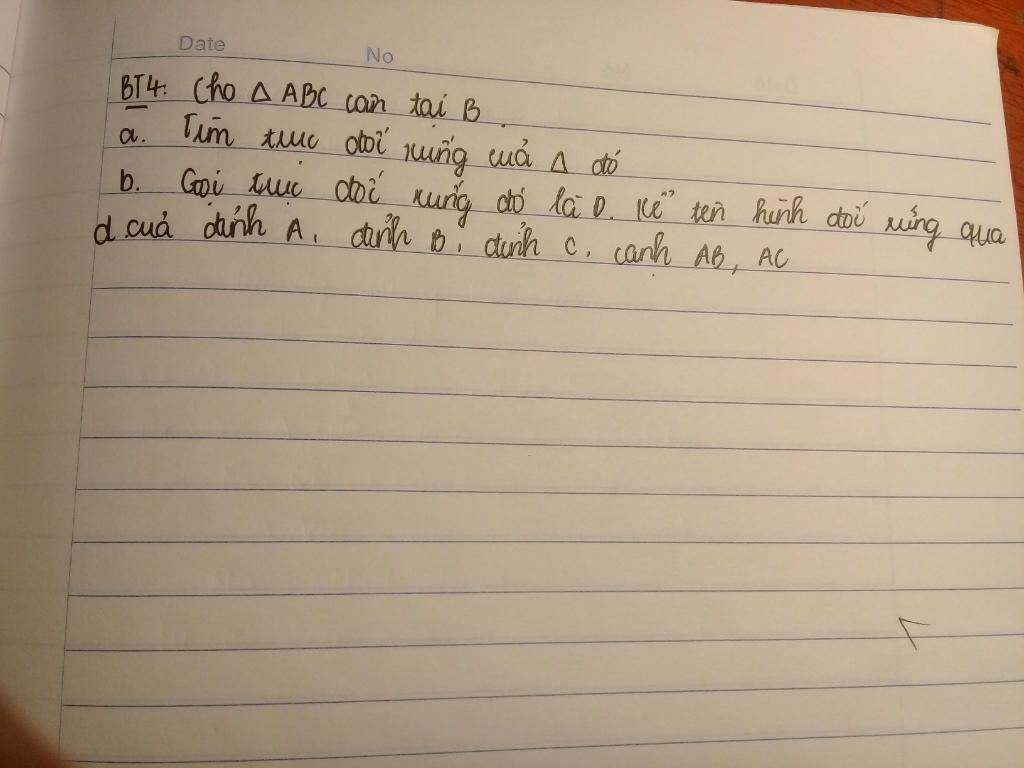 Date No
BT4: Cho Δ ABC cân tại B.
a. Tìm trục đối xứng của Δ đó
b. Gọi trục đối xứng đó là D. Kể tên hình đối xứng qua
d của đỉnh A, đỉnh B, đỉnh C, cạnh AB, AC